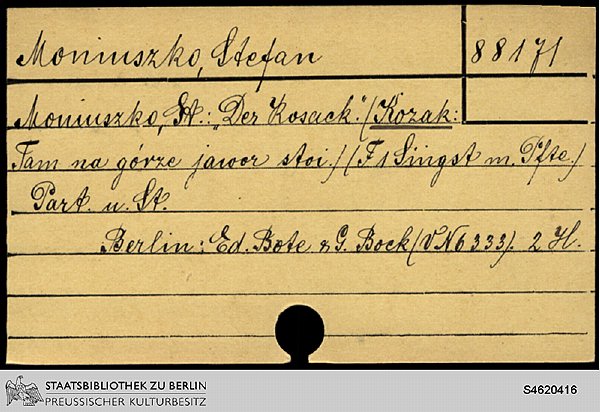 Moniuszko, Stefan
88171
Moniuszko, St.: „Der Kosack." (Kozak:
Tam na górze jawor stoi.) (F 1 Singst m. Pfte.)
Part. u. St.
Berlin: Ed. Bote & G. Bock (VN 6333). 2 H.
STAATSBIBLIOTHEK ZU BERLIN
PREUSSISCHER KULTURBESITZ
S4620416